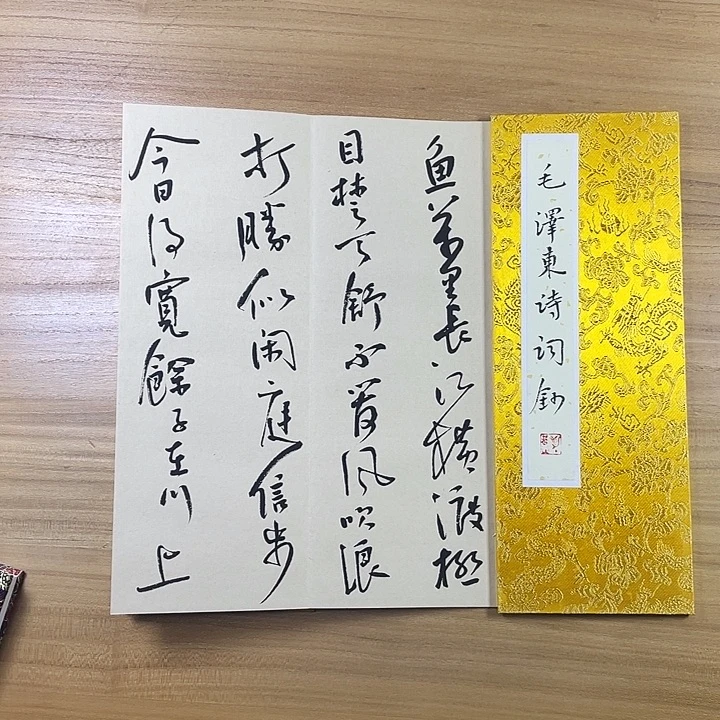 毛澤東诗词鈔
鱼萬里长江横渡极
目楚天舒不管风吹浪
打勝似闲庭信步
今日得寬餘子在川上